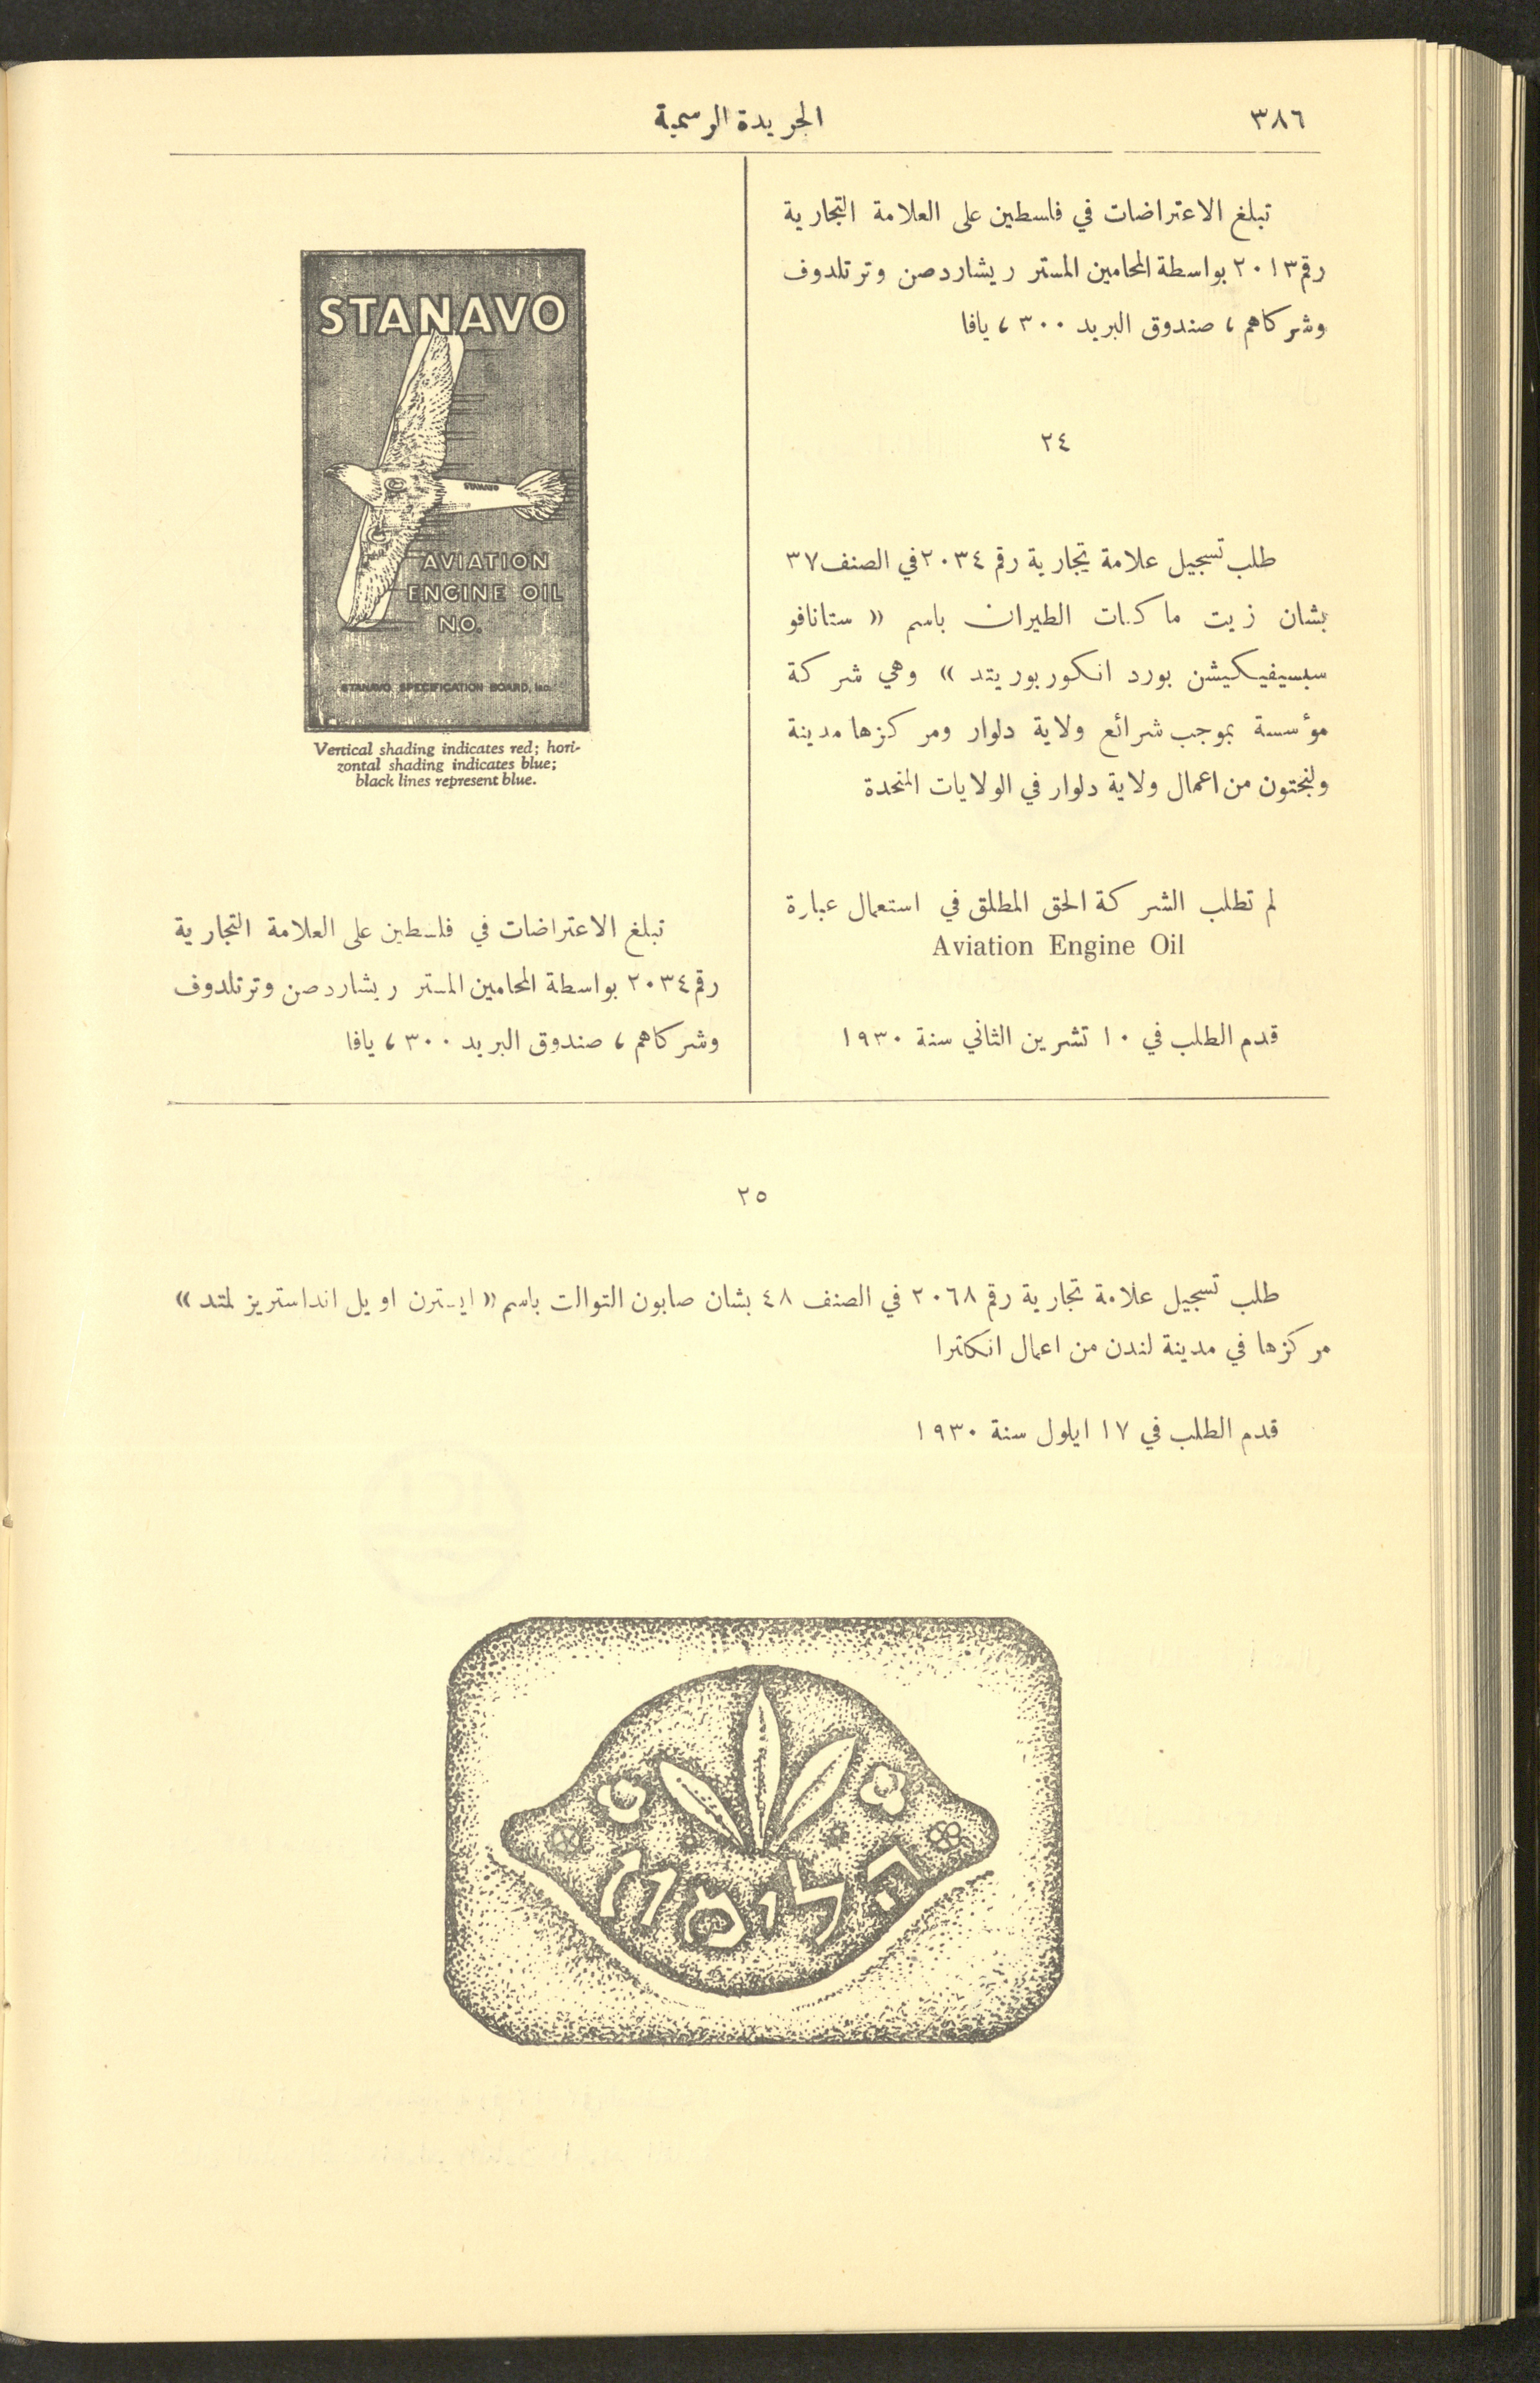 ٣٨٦
الجريدة الرسمية
تبلغ الاعتراضات في فلسطين على العلامة التجارية
رقم ٢٠١٣ بواسطة المحامين المستر ريشاردصن وترتلدوف
وشركاهم ، صندوق البريد ٣٠٠ ، يافا
٢٤
طلب تسجيل علامة تجارية رقم ٢٠٣٤ في الصنف ٣٧
بشان زيت ماكنات الطيران باسم « ستانافو
سبسيفيكيشن بورد انكوربوريتد » وهي شركة
مؤسسة بموجب شرائع ولاية دلوار ومركزها مدينة
ولنجتون من اعمال ولاية دلوار في الولايات المتحدة
لم تطلب الشركة الحق المطلق في استعمال عبارة
Aviation Engine Oil
قدم الطلب في ١٠ تشرين الثاني سنة ١٩٣٠
STANAVO
STANAVO
AVIATION
ENGINE OIL
NO.
STANAVO SPECIFICATION BOARD, Inc.
Vertical shading indicates red; hori-
zontal shading indicates blue;
black lines represent blue.
تبلغ الاعتراضات في فلسطين على العلامة التجارية
رقم ٢٠٣٤ بواسطة المحامين المستر ريشاردصن وترتلدوف
وشركاهم ، صندوق البريد ٣٠٠ ، يافا
٢٥
طلب تسجيل علامة تجارية رقم ٢٠٦٨ في الصنف ٤٨ بشان صابون التوالت باسم « ايسترن اويل انداستريز لمتد »
مركزها في مدينة لندن من اعمال انكلترا
قدم الطلب في ١٧ ايلول سنة ١٩٣٠